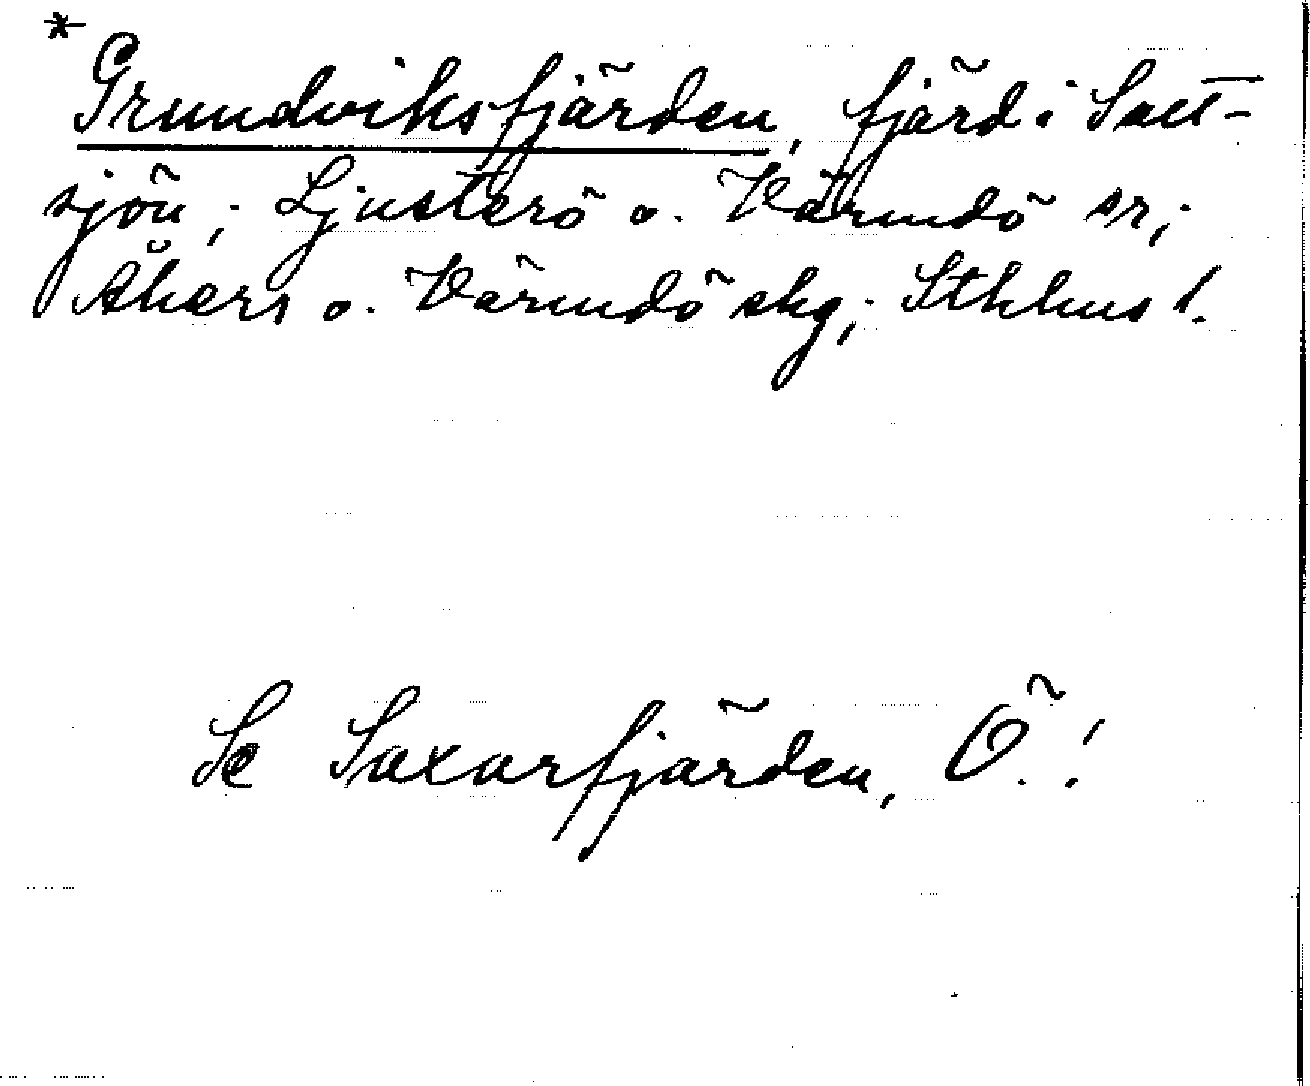 * Grundviksfjärden, fjärd i Salt-
sjön; Ljusterö o. Värmdö sn;
Åkers o. Värmdö skg; Sthlms l.
Se Saxarfjärden, Ö.!